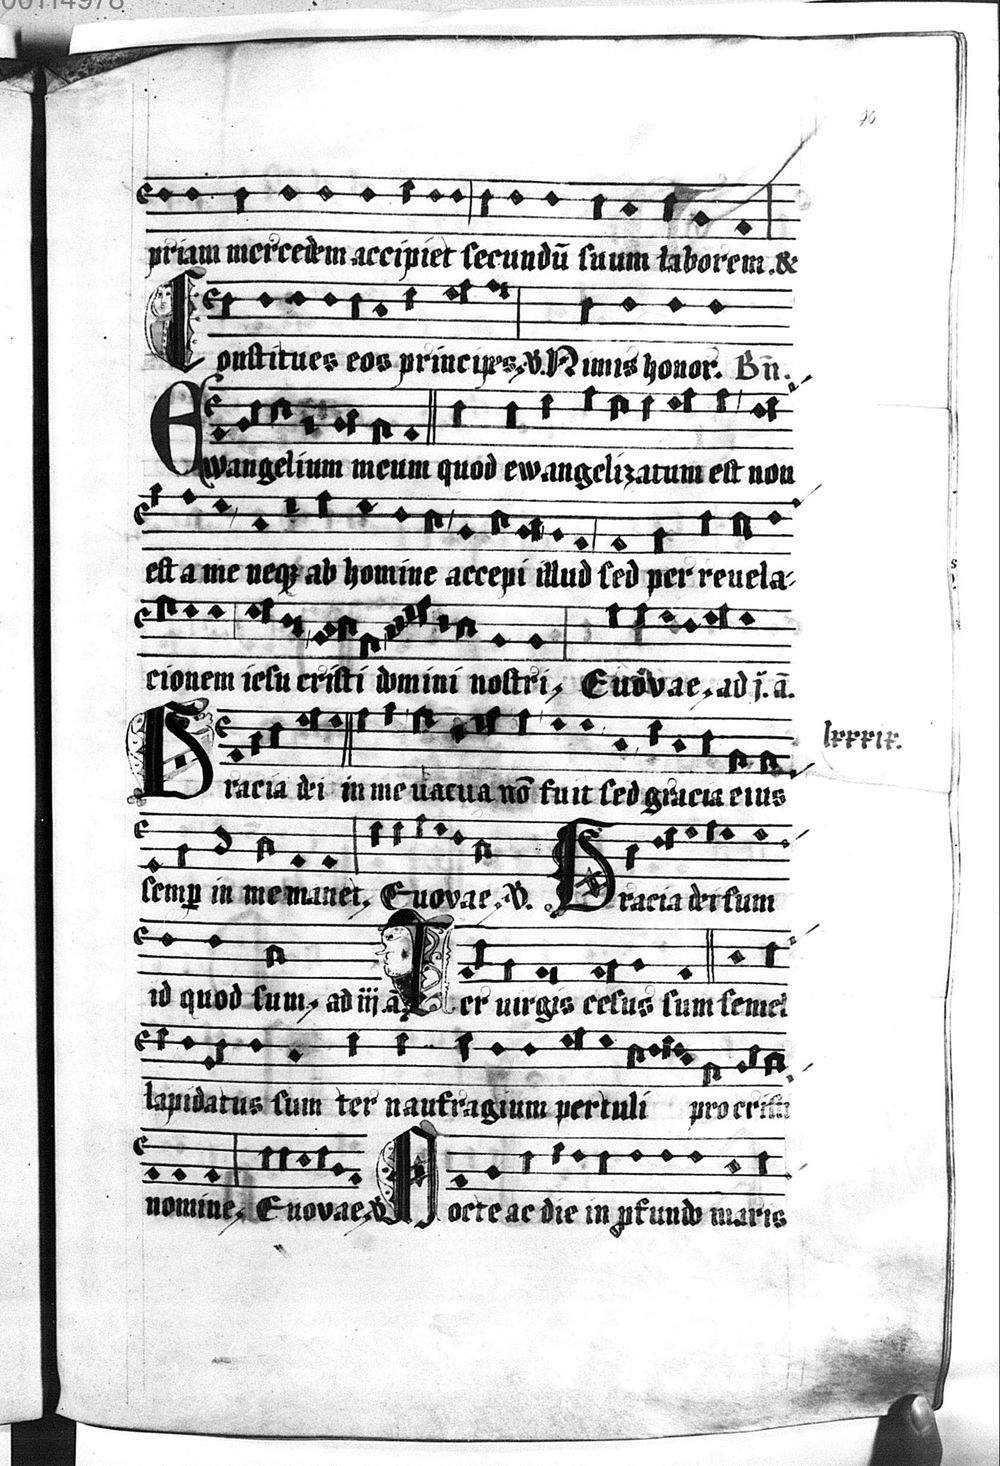 00114978
90
priam mercedem accipiet secundū suum laborem. &
Constitues eos principes, V. Nimis honor. Bn̄.
Ewangelium meum quod ewangelizatum est non
est a me neqꝫ ab homine accepi illud sed per reuela-
cionem iesu cristi domini nostri, Euovae, ad j. ā.
Gracia dei in me uacua nō fuit sed gracia eius
lxxxix.
semꝑ in me manet, Euovae, V. Gracia dei sum
id quod sum, ad iij. ā. Ter uirgis cesus sum semel
lapidatus sum ter naufragium pertuli pro cristi
nomine, Euovae, V. Nocte ac die in ꝓfundo maris